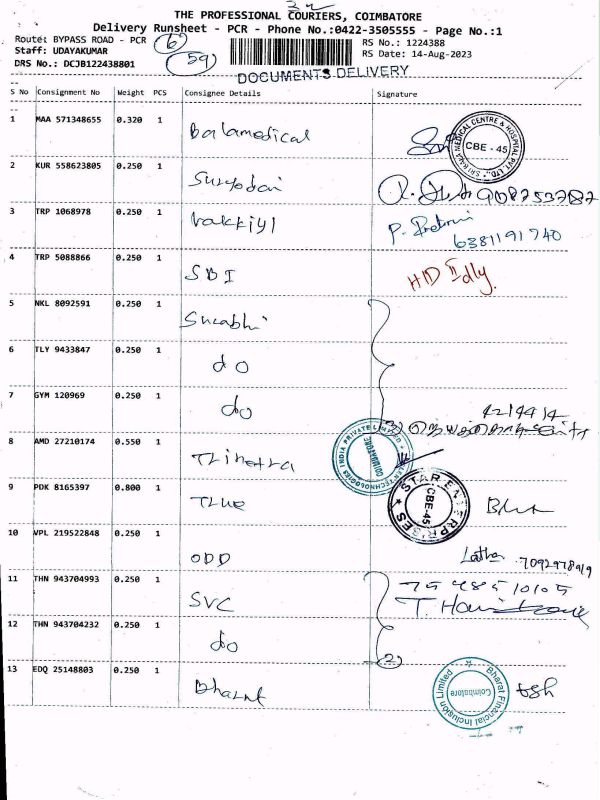 THE PROFESSIONAL COURIERS, COIMBATORE
Delivery Runsheet - PCR - Phone No.:0422-3505555 - Page No.:1
Route: BYPASS ROAD - PCR 6 RS No.: 1224388
Staff: UDAYAKUMAR 59 RS Date: 14-Aug-2023
DRS No.: DCJB122438801
DOCUMENTS DELIVERY
S No Consignment No Weight PCS Consignee Details Signature
1 MAA 571348655 0.320 1 Balamedical CBE - 45
2 KUR 558623805 0.250 1 Suryodai
3 TRP 1068978 0.250 1 Vakkiyl P.
6381191740
4 TRP 5088866 0.250 1 SBI HD Idly
5 NKL 8092591 0.250 1 Surabhi
6 TLY 9433847 0.250 1 do
7 GYM 120969 0.250 1 do
8 AMD 27210174 0.550 1 Trinetra COIMBATORE
9 PDK 8165397 0.800 1 True STAR ENTERPRISES CBE-45
10 VPL 219522848 0.250 1 ODD Latha 7092978919
11 THN 943704993 0.250 1 SVC 7548510105
12 THN 943704232 0.250 1 do 2
13 EDQ 25148803 0.250 1 Bharat Bharat Financial Inclusion Limited Coimbatore